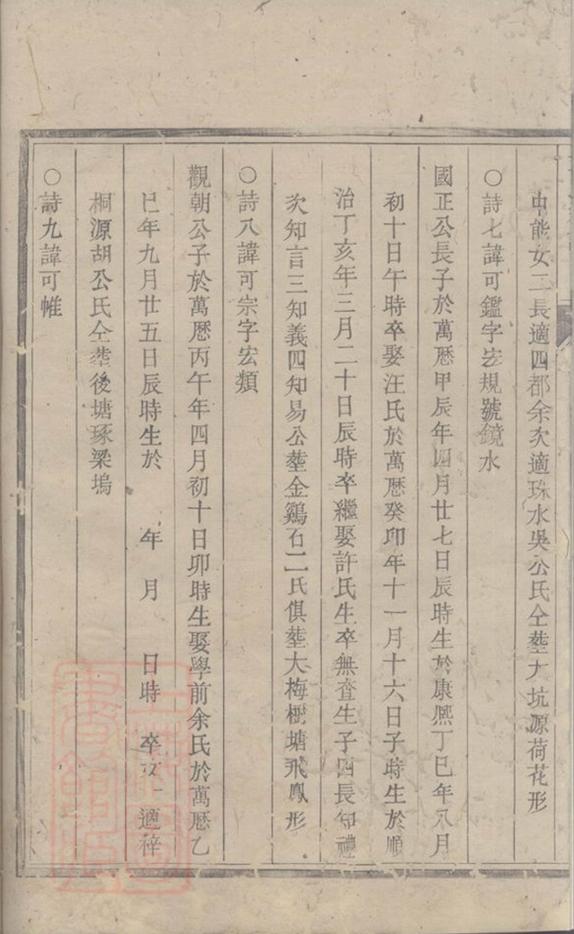 中能女三長適四都余次適珠水吳公氏仝塟大坑源荷花形
○詩七諱可鑑字宏規號鏡水
國正公長子於萬曆甲辰年四月廿七日辰時生於康熙丁巳年八月
初十日午時卒娶汪氏於萬曆癸卯年十一月十六日子時生於順
治丁亥年三月二十日辰時卒繼娶許氏生卒無查生子四長知禮
次知言三知義四知易公塟金鷄石二氏俱塟大梅樹塘飛鳳形
○詩八諱可宗字宏類
觀朝公子於萬曆丙午年四月初十日卯時生娶學前余氏於萬曆乙
巳年九月廿五日辰時生於 年 月 日時 卒女一適梓
桐源胡公氏仝塟後塘琢梁塢
○詩九諱可帷